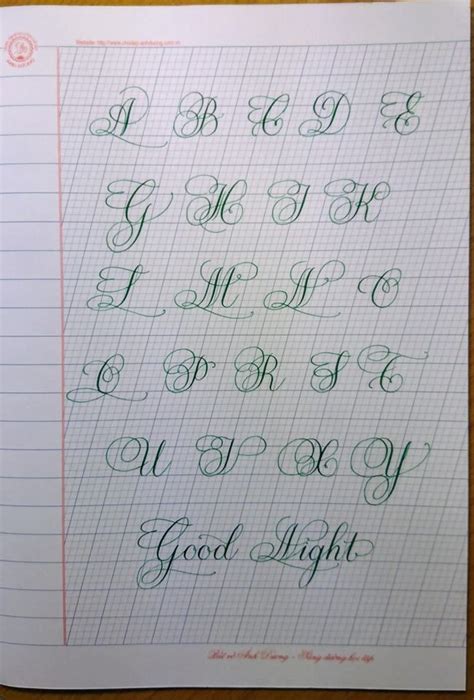 Website:
A B C D E
G H I K
L M N O
Q P R S T
U V X Y
Good Night
Bút vở Ánh Dương - Sáng đường học tập